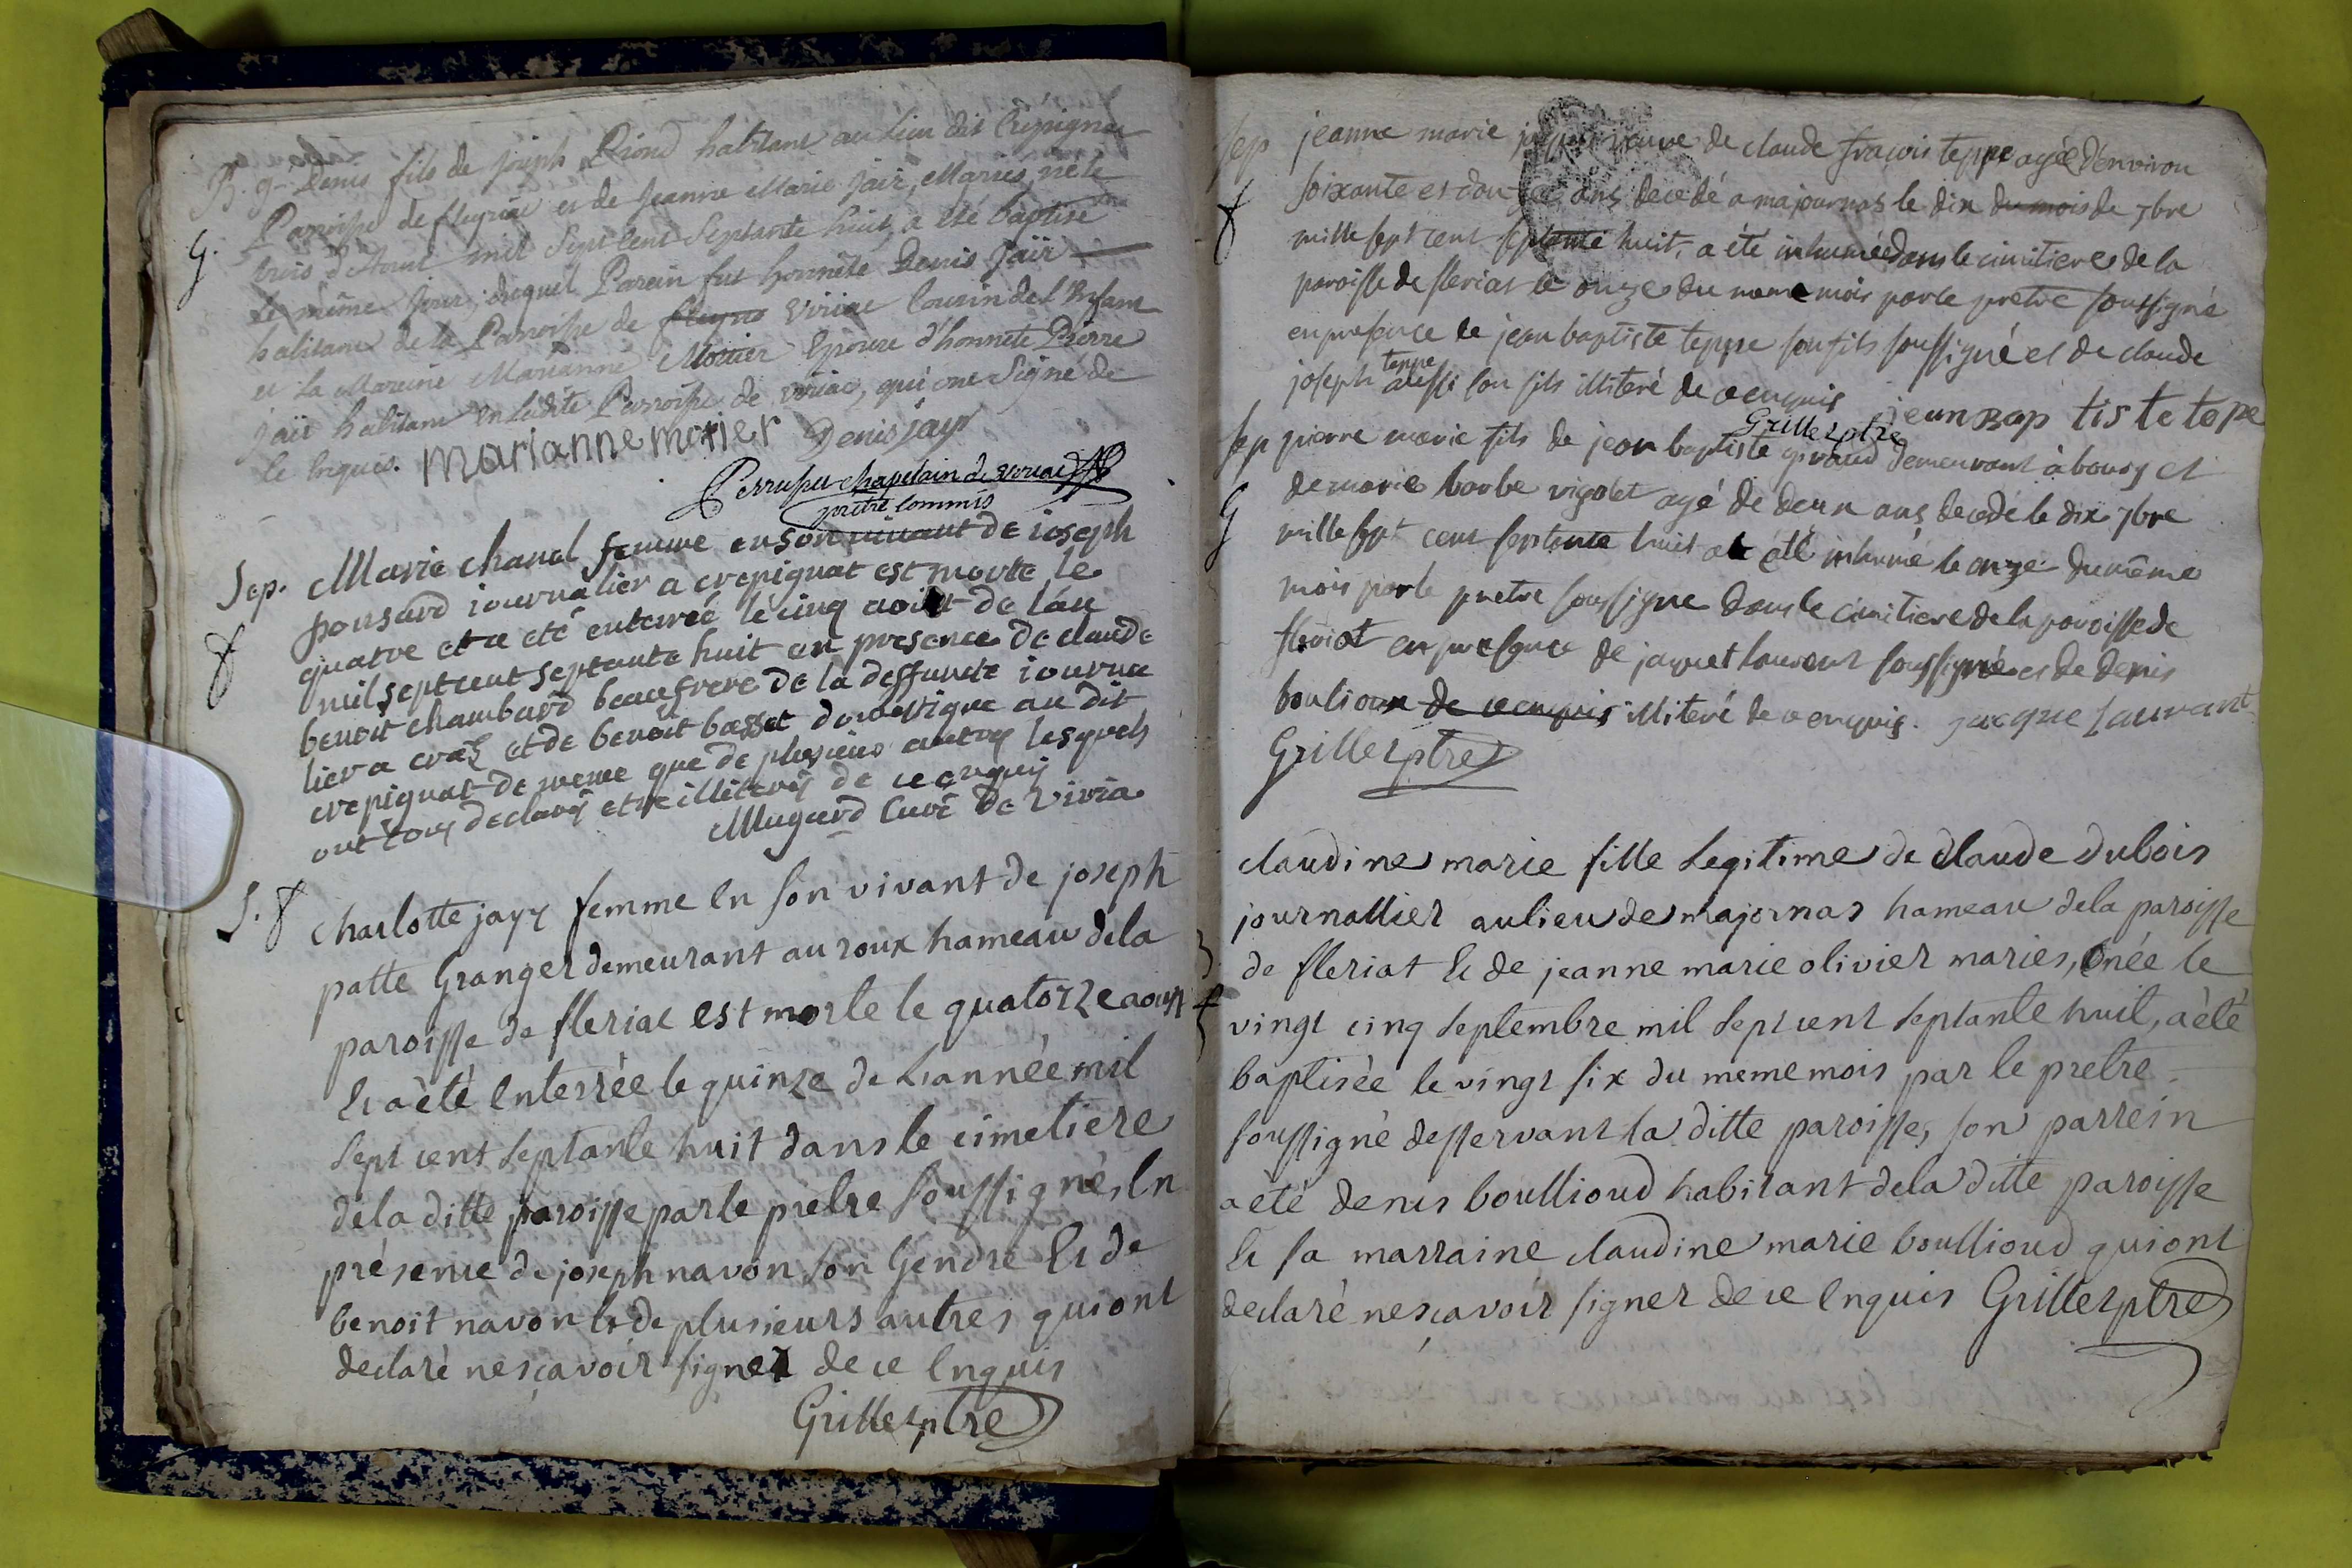 B. g. Denis fils de joseph Piond habitant au lieu dit Crépignat
Paroisse de fleyriac et de Jeanne Marie jaïr, Mariés, né le
g. trois d'Aout mil Sept Cent Septante huit, a été baptisé
le même jour; duquel Parein fut honnête Denis Jaïr
habitant de la Parroisse de viriac Cousin de l'Enfant
et la Mareine Marianne Morier Epouse d'honnête Pierre
jaïr habitant en ladite Parroisse de viriac, qui ont Signé de
ce Enquis. Marianne morier Denis jayr
chapelain de viriac
pretre commis
Sep. Marie chanel femme en son vivant de ioseph
ponsard iournalier a crepignat est morte le
quatre et a eté enterreé le cinq aoiut de l'an
mil sept cent septante huit en presence de claude
benoit chambard beaufrere de la deffuncte iourna
lier a cras et de benoit basset domestique au dit
crepignat de meme que de plusieurs autres lesquels
ont tous declarés etre illiterés de ce enquis
Mugard Curé de Viria
S. charlotte jayr femme en son vivant de joseph
patte Granger demeurant au roux hameau de la
paroisse de fleriac est morte le quatorze aoust
et a èté enterrée le quinze de L'année mil
sept cent septante huit dans le cimetiere
de la ditte paroisse par le prètre soussigné, en
présence de joseph navon son Gendre et de
benoit navon et de plusieurs autres qui ont
declaré ne sçavoir signer de ce enquis
Grillet ptre
sep jeanne marie veuve de claude fracois teppe agée d'environ
soixante et douze ans decedé a majournas le dix du mois de 7bre
mille sept cent septante huit, a été inhumée dans le cimitiere de la
paroisse de fleriat le onze du meme mois par le pretre soussigné
en presence de jean baptiste teppe son fils soussigné et de claude
joseph teppe aussi son fils illiteré de ce enquis jean Bap tiste tepe
Grillet ptre
sep pierre marie fils de jean baptiste giraud demeurant à bourg et
de marie barbe vigolet agé de deux ans decedé le dix 7bre
G mille sept cent septante huit a été inhumé le onze du même
mois par le pretre soussigné dans le cimitiere de la paroisse de
fleriat en presence de jaquet laurent soussigné et de denis
boulioux de ce enquis illiteré de ce enquis. jacque laurant
Grillet ptre
claudine marie fille legitime de claude dubois
journallier au lieu de majornas hameau de la paroisse
de fleriat et de jeanne marie olivier mariés, née le
vingt cinq septembre mil sept cent septante huit, a èté
baptisée le vingt six du meme mois par le pretre
soussigné desservant la ditte paroisse, son parrein
a été denis boullioud habitant de la ditte paroisse
et sa marraine claudine marie boullioud qui ont
declaré ne sçavoir signer de ce enquis Grillet ptre